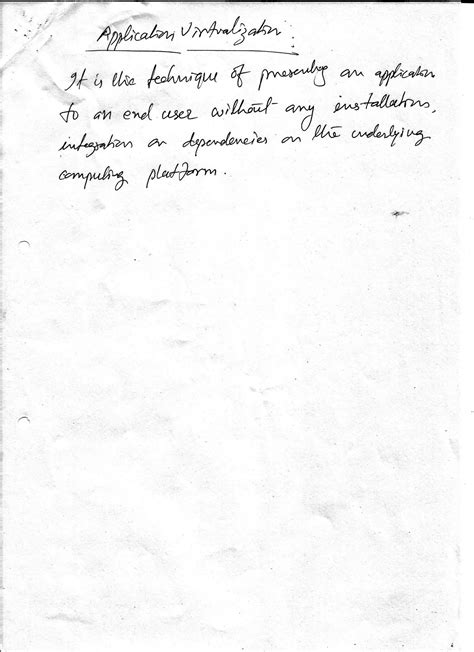 Application Virtualization :
It is the technique of presenting an application
to an end user without any installations,
integration or dependencies on the underlying
computing platform.